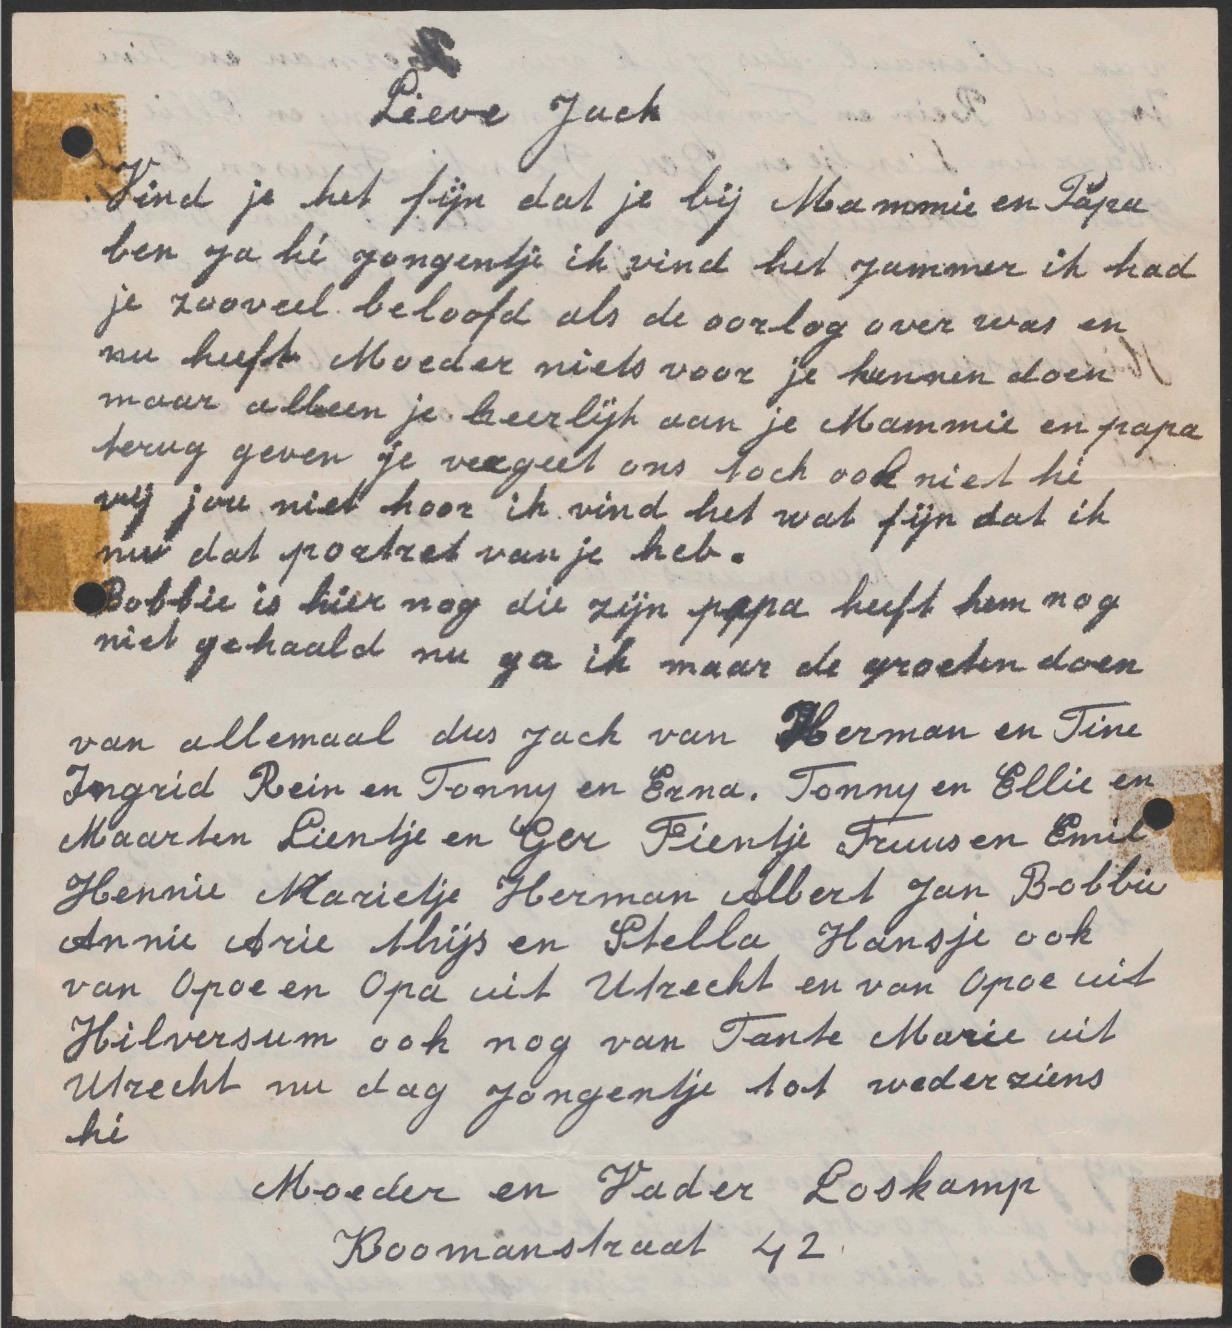 Lieve Jack
Vind je het fijn dat je bij Mammie en Papa
ben ja hé jongentje ik vind het jammer ik had
je zooveel beloofd als de oorlog over was en
nu heeft Moeder niets voor je kunnen doen
maar alleen je heerlijk aan je Mammie en papa
terug geven je vergeet ons toch ook niet hé
wij jou niet hoor ik vind het wat fijn dat ik
nu dat portret van je heb.
Bobbie is hier nog die zijn papa heeft hem nog
niet gehaald nu ga ik maar de groeten doen
van allemaal dus Jack van Herman en Tine
Ingrid Rein en Tonny en Erna. Tonny en Ellie en
Maarten Lientje en Ger Fientje Truus en Emil
Hennie Marietje Herman Albert Jan Bobbie
Annie Arie thijs en Stella Hansje ook
van Opoe en Opa uit Utrecht en van Opoe uit
Hilversum ook nog van Tante Marie uit
Utrecht nu dag jongentje tot wederziens
hé
Moeder en Vader Loskamp
Koomanstraat 42